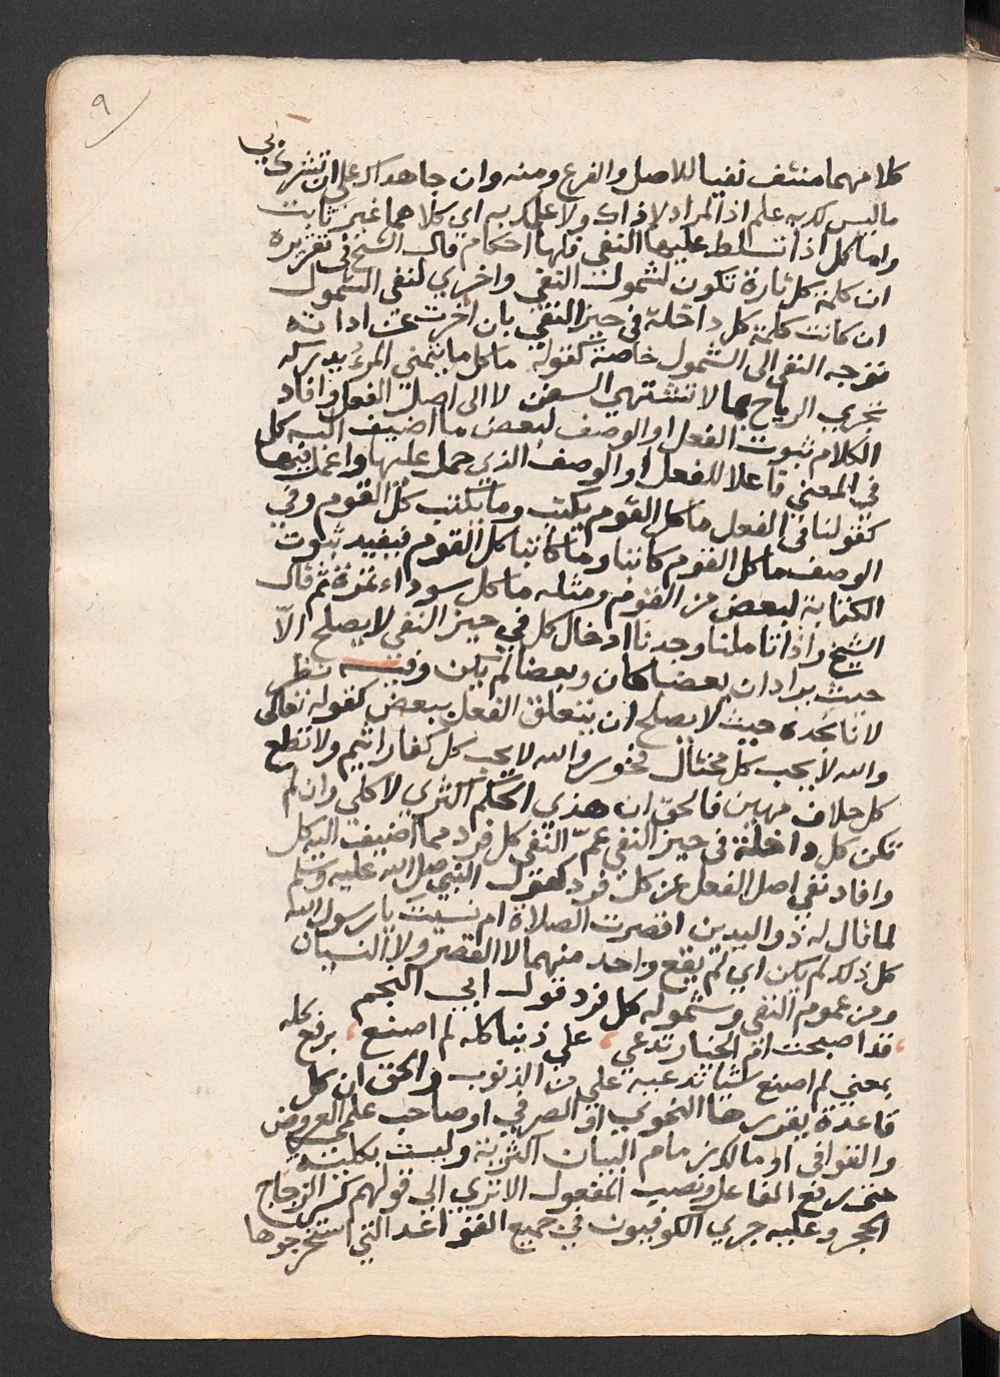 ٩
كلا منهما منتف نفيا للاصل والفرع ومنه وان جاهداك على ان تشرك بي
ما ليس لك به علم اذ المراد لا ذاك ولا علمك به اي كلاهما غير ثابت
واما كل اذا تسلط عليها النفي فلها احكام قال الشيخ في تقريره
ان كلمة كل تارة تكون لشمول النفي واخري لنفي الشمول
ان كانت كلمة كل داخلة في حيز النفي بان اخرت عن اداته
توجه النفي الى الشمول خاصة كقوله ما كل ما يتمني المرء يدركه
تجري الرياح بما لا تشتهي السفن لا الى اصل الفعل وافاد
الكلام ثبوت الفعل او الوصف لبعض ما اضيف اليه كل
في المعني فاعلا للفعل او الوصف الذي حمل عليها واعمل فيها
كقولنا في الفعل ما كل القوم يكتب وما يكتب كل القوم وفي
الوصف ما كل القوم كاتبا وما كاتبا كل القوم فيفيد ثبوت
الكتابة لبعض من القوم ومثله ما كل سوداء تمرة ثم قال
الشيخ واذا تاملنا وجدنا ادخال كل في حيز النفي لا يصلح الّا
حيث يراد ان بعضا كان وبعضا لم يكن وفيه نظر
لانا نجده حيث لا يصلح ان يتعلق الفعل ببعض كقوله تعالى
والله لا يحب كل مختال فخور والله لا يحب كل كفار اثيم ولا تطع
كل حلاف مهين فالحق ان هذي الحكم اكثري لا كلي وان لم
تكن كل داخلة في حيز النفي عمّ النفي كل فرد مما اضيف اليه كل
وافاد نفي اصل الفعل عن كل فرد كقول النبي صلى الله عليه وسلم
لما قال له ذو اليدين اقصرت الصلاة ام نسيت يا رسول الله
كل ذلك لم يكن اي لم يقع واحد منهما لا القصر ولا النسيان
ومن عموم النفي وشموله كل فرد قول ابي النجم
قد اصبحت ام الخيار تدعي ، علي ذنبا كله لم اصنع ، برفع كله
بمعني لم اصنع شيا تدعيه علي من الذنوب والحق ان كل
قاعدة يقررها النحوي او الصرفي او صاحب علمي العروض
والقوافي او ما لك زمام البيان اكثرية وليست بكلية
حتى رفع الفاعل ونصب المفعول الا تري الي قولهم كسر الزجاج
الحجر وعليه جري الكوفيون في جميع القواعد التي استخرجوها